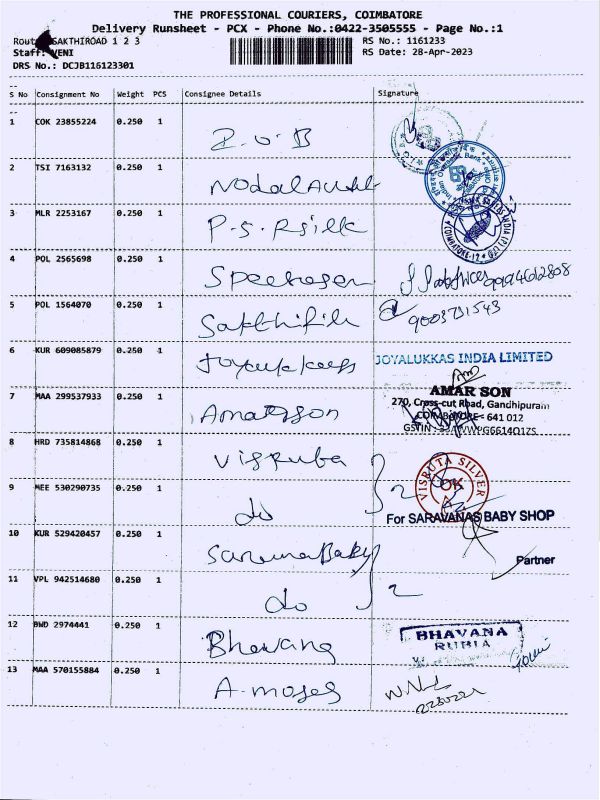 THE PROFESSIONAL COURIERS, COIMBATORE
Delivery Runsheet - PCX - Phone No.:0422-3505555 - Page No.:1
SAKTHIROAD 1 2 3
RS No.: 1161233
Staff: VENI
RS Date: 28-Apr-2023
DRS No.: DCJB116123301
S No Consignment No Weight PCS Consignee Details Signature
1 COK 23855224 0.250 1
2 TSI 7163132 0.250 1
3 MLR 2253167 0.250 1 P.S.R Silk
4 POL 2565698 0.250 1 9994612808
5 POL 1564070 0.250 1 9003731543
6 KUR 609085879 0.250 1 JOYALUKKAS INDIA LIMITED
7 MAA 299537933 0.250 1 AMAR SON
270, Cross-cut Road, Gandhipuram
COIMBATORE - 641 012
GSTIN :
8 HRD 735814868 0.250 1 Visruba
VISRUTA SILVER
OK
9 MEE 530290735 0.250 1 do 2
For SARAVANAS BABY SHOP
10 KUR 529420457 0.250 1
Partner
11 VPL 942514680 0.250 1 do 2
12 BWD 2974441 0.250 1 BHAVANA
RUBIA
13 MAA 570155884 0.250 1 A. moses